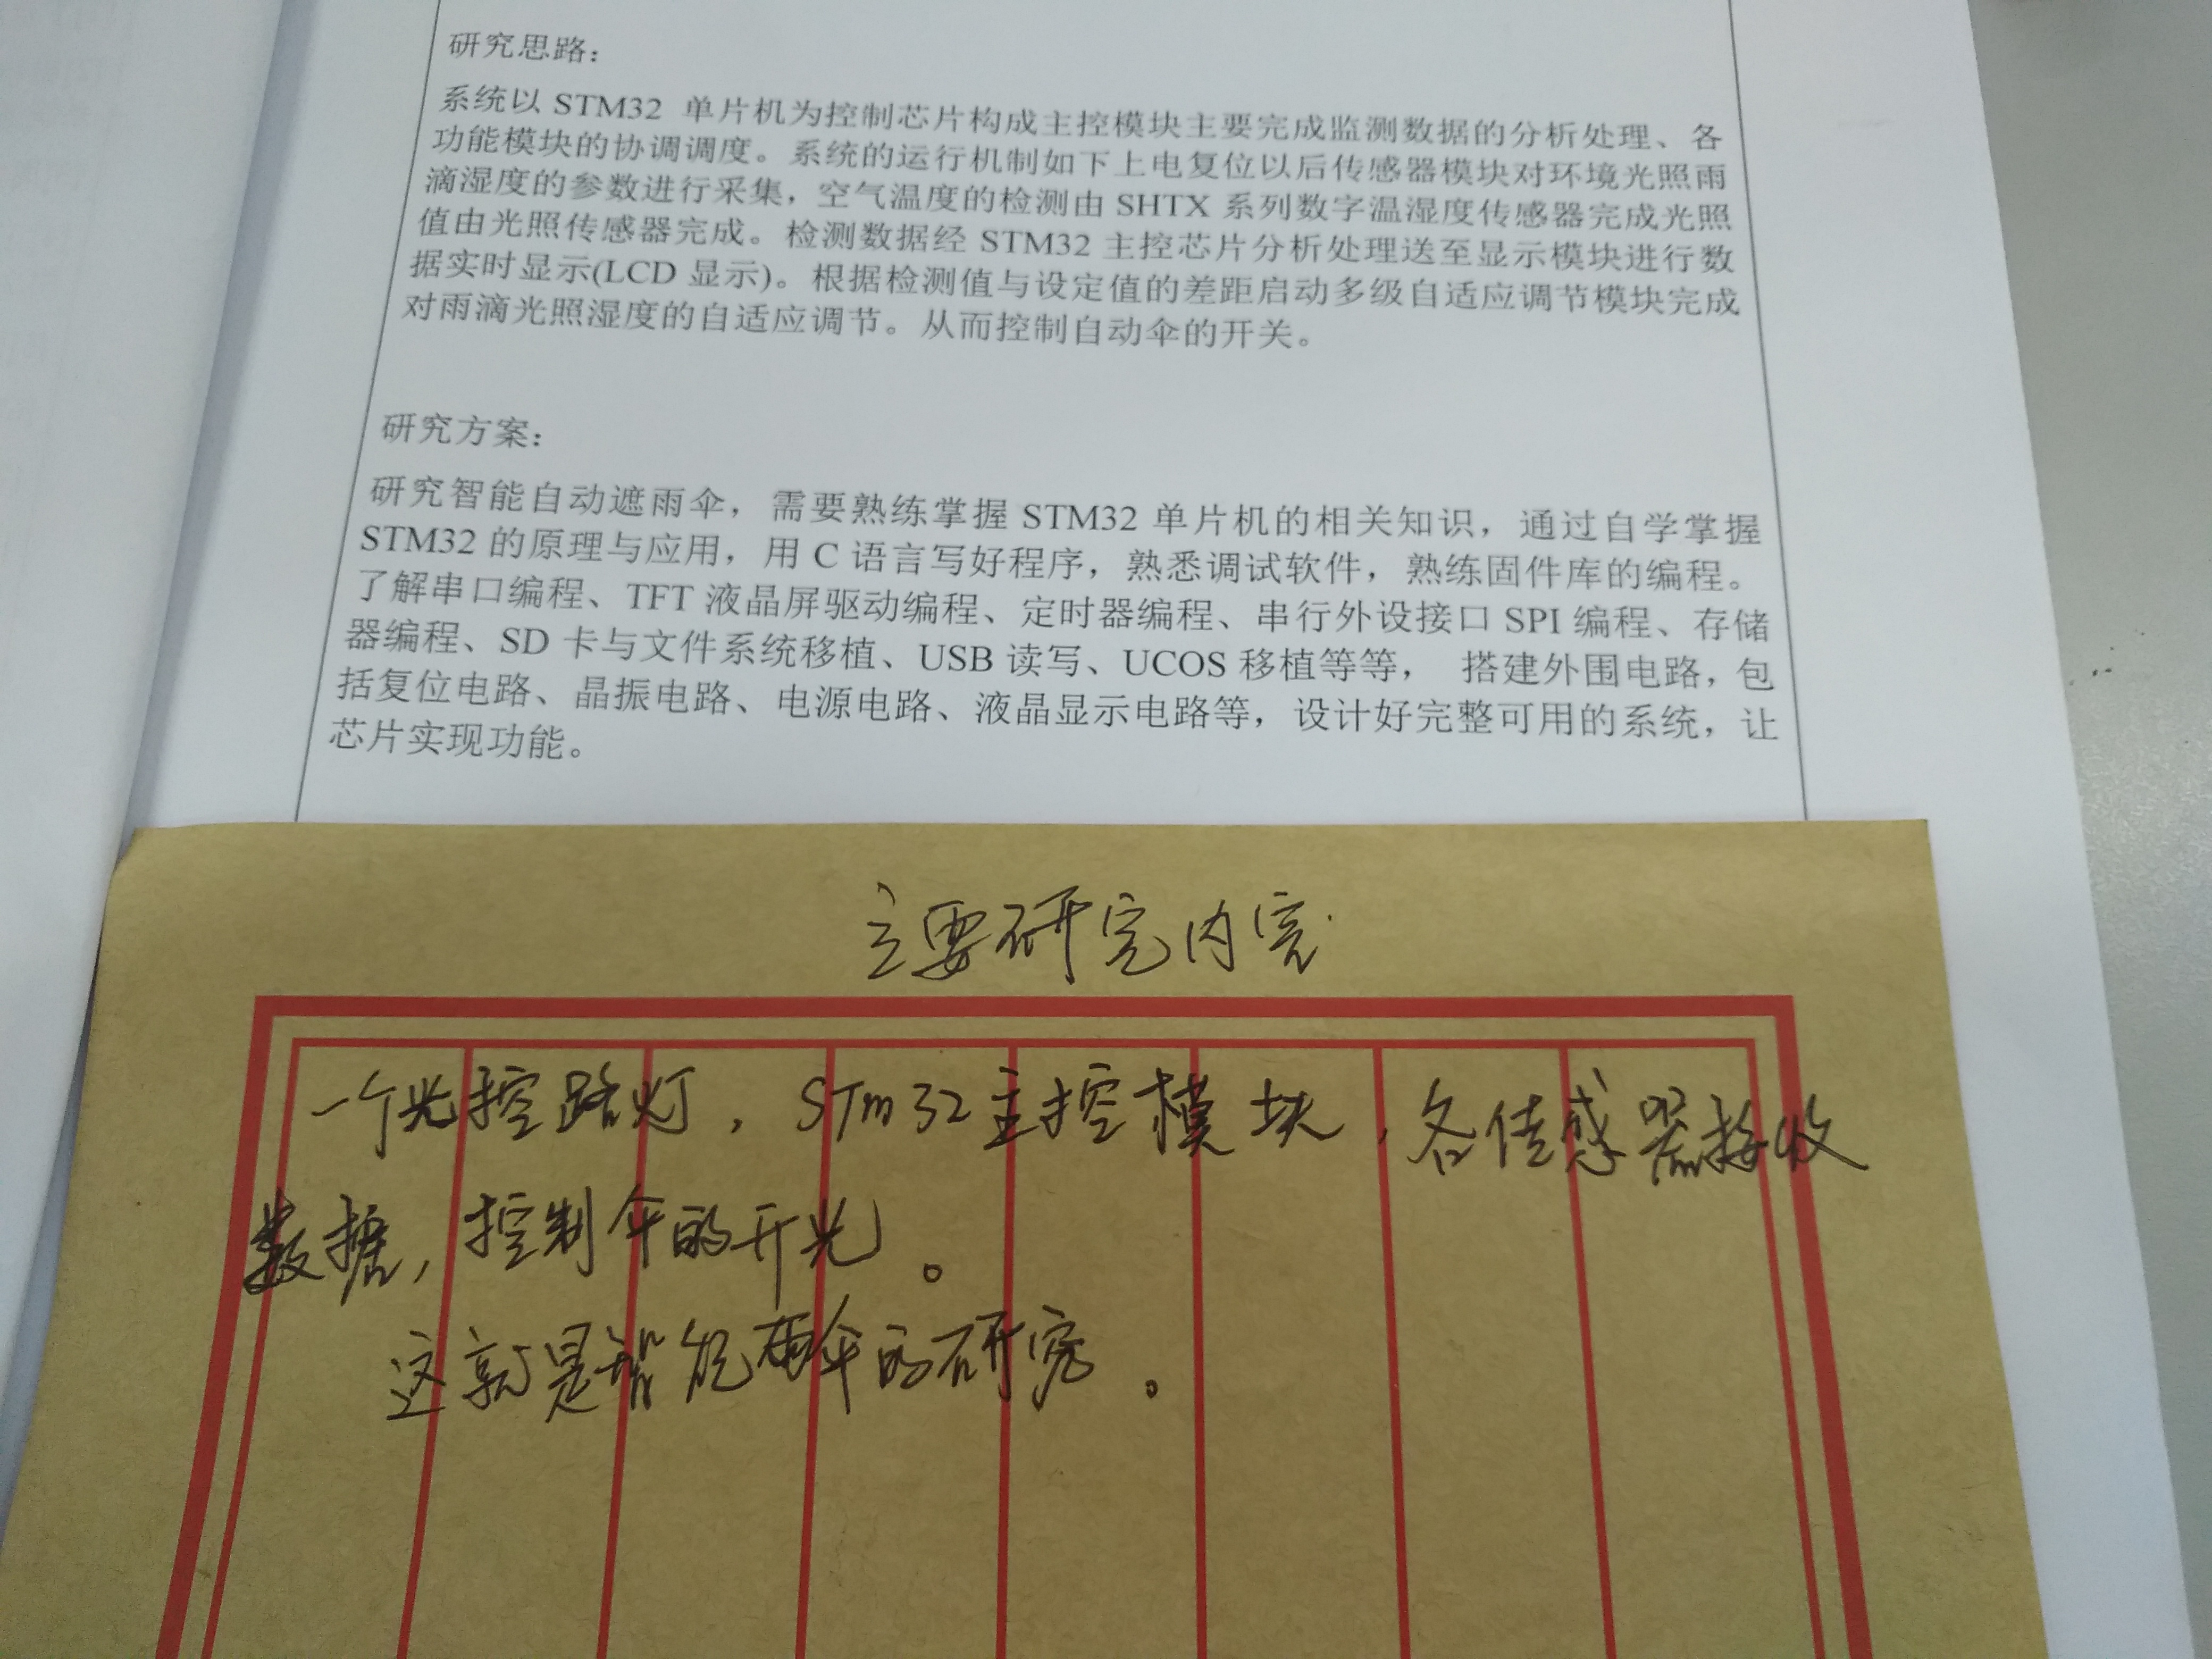 研究思路：
系统以 STM32 单片机为控制芯片构成主控模块主要完成监测数据的分析处理、各
功能模块的协调调度。系统的运行机制如下上电复位以后传感器模块对环境光照雨
滴湿度的参数进行采集，空气温度的检测由 SHTX 系列数字温湿度传感器完成光照
值由光照传感器完成。检测数据经 STM32 主控芯片分析处理送至显示模块进行数
据实时显示(LCD 显示)。根据检测值与设定值的差距启动多级自适应调节模块完成
对雨滴光照湿度的自适应调节。从而控制自动伞的开关。
研究方案：
研究智能自动遮雨伞，需要熟练掌握 STM32 单片机的相关知识，通过自学掌握
STM32 的原理与应用，用 C 语言写好程序，熟悉调试软件，熟练固件库的编程。
了解串口编程、TFT 液晶屏驱动编程、定时器编程、串行外设接口 SPI 编程、存储
器编程、SD 卡与文件系统移植、USB 读写、UCOS 移植等等， 搭建外围电路，包
括复位电路、晶振电路、电源电路、液晶显示电路等，设计好完整可用的系统，让
芯片实现功能。
主要研究内容
一个光控路灯，STm32主控模块，各传感器接收
数据，控制伞的开光。
这就是智能雨伞的研究。